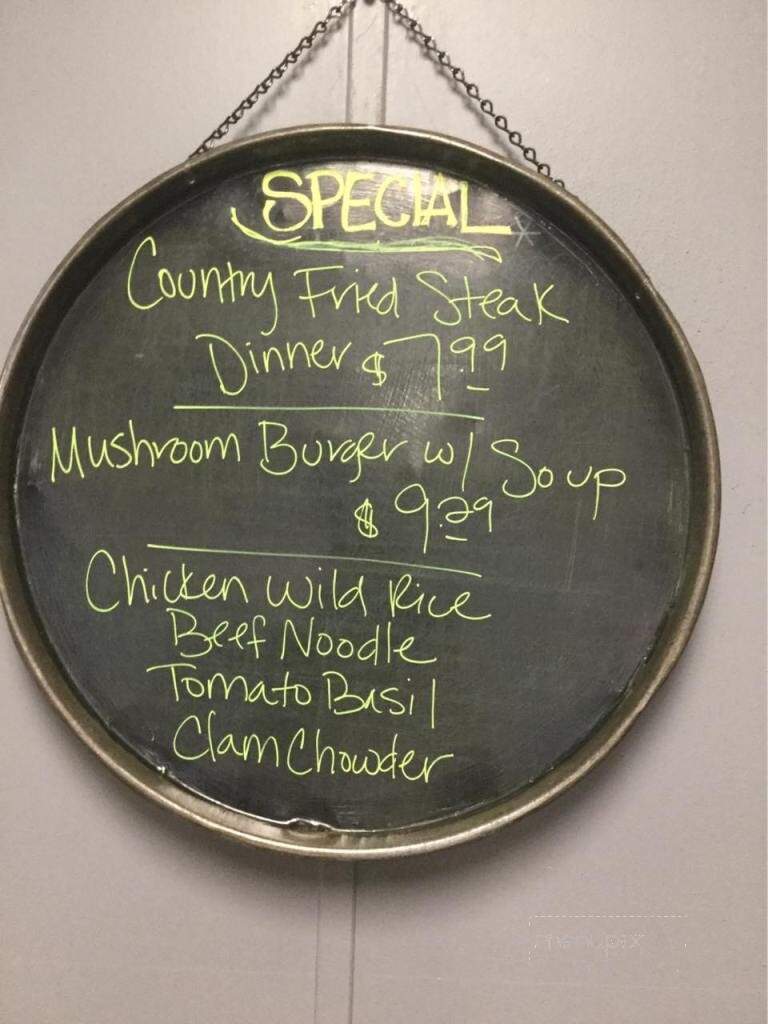 SPECIAL
Country Fried Steak
Dinner $7.99
Mushroom Burger w/ Soup
$9.29
Chicken Wild Rice
Beef Noodle
Tomato Basil
Clam Chowder
menupix